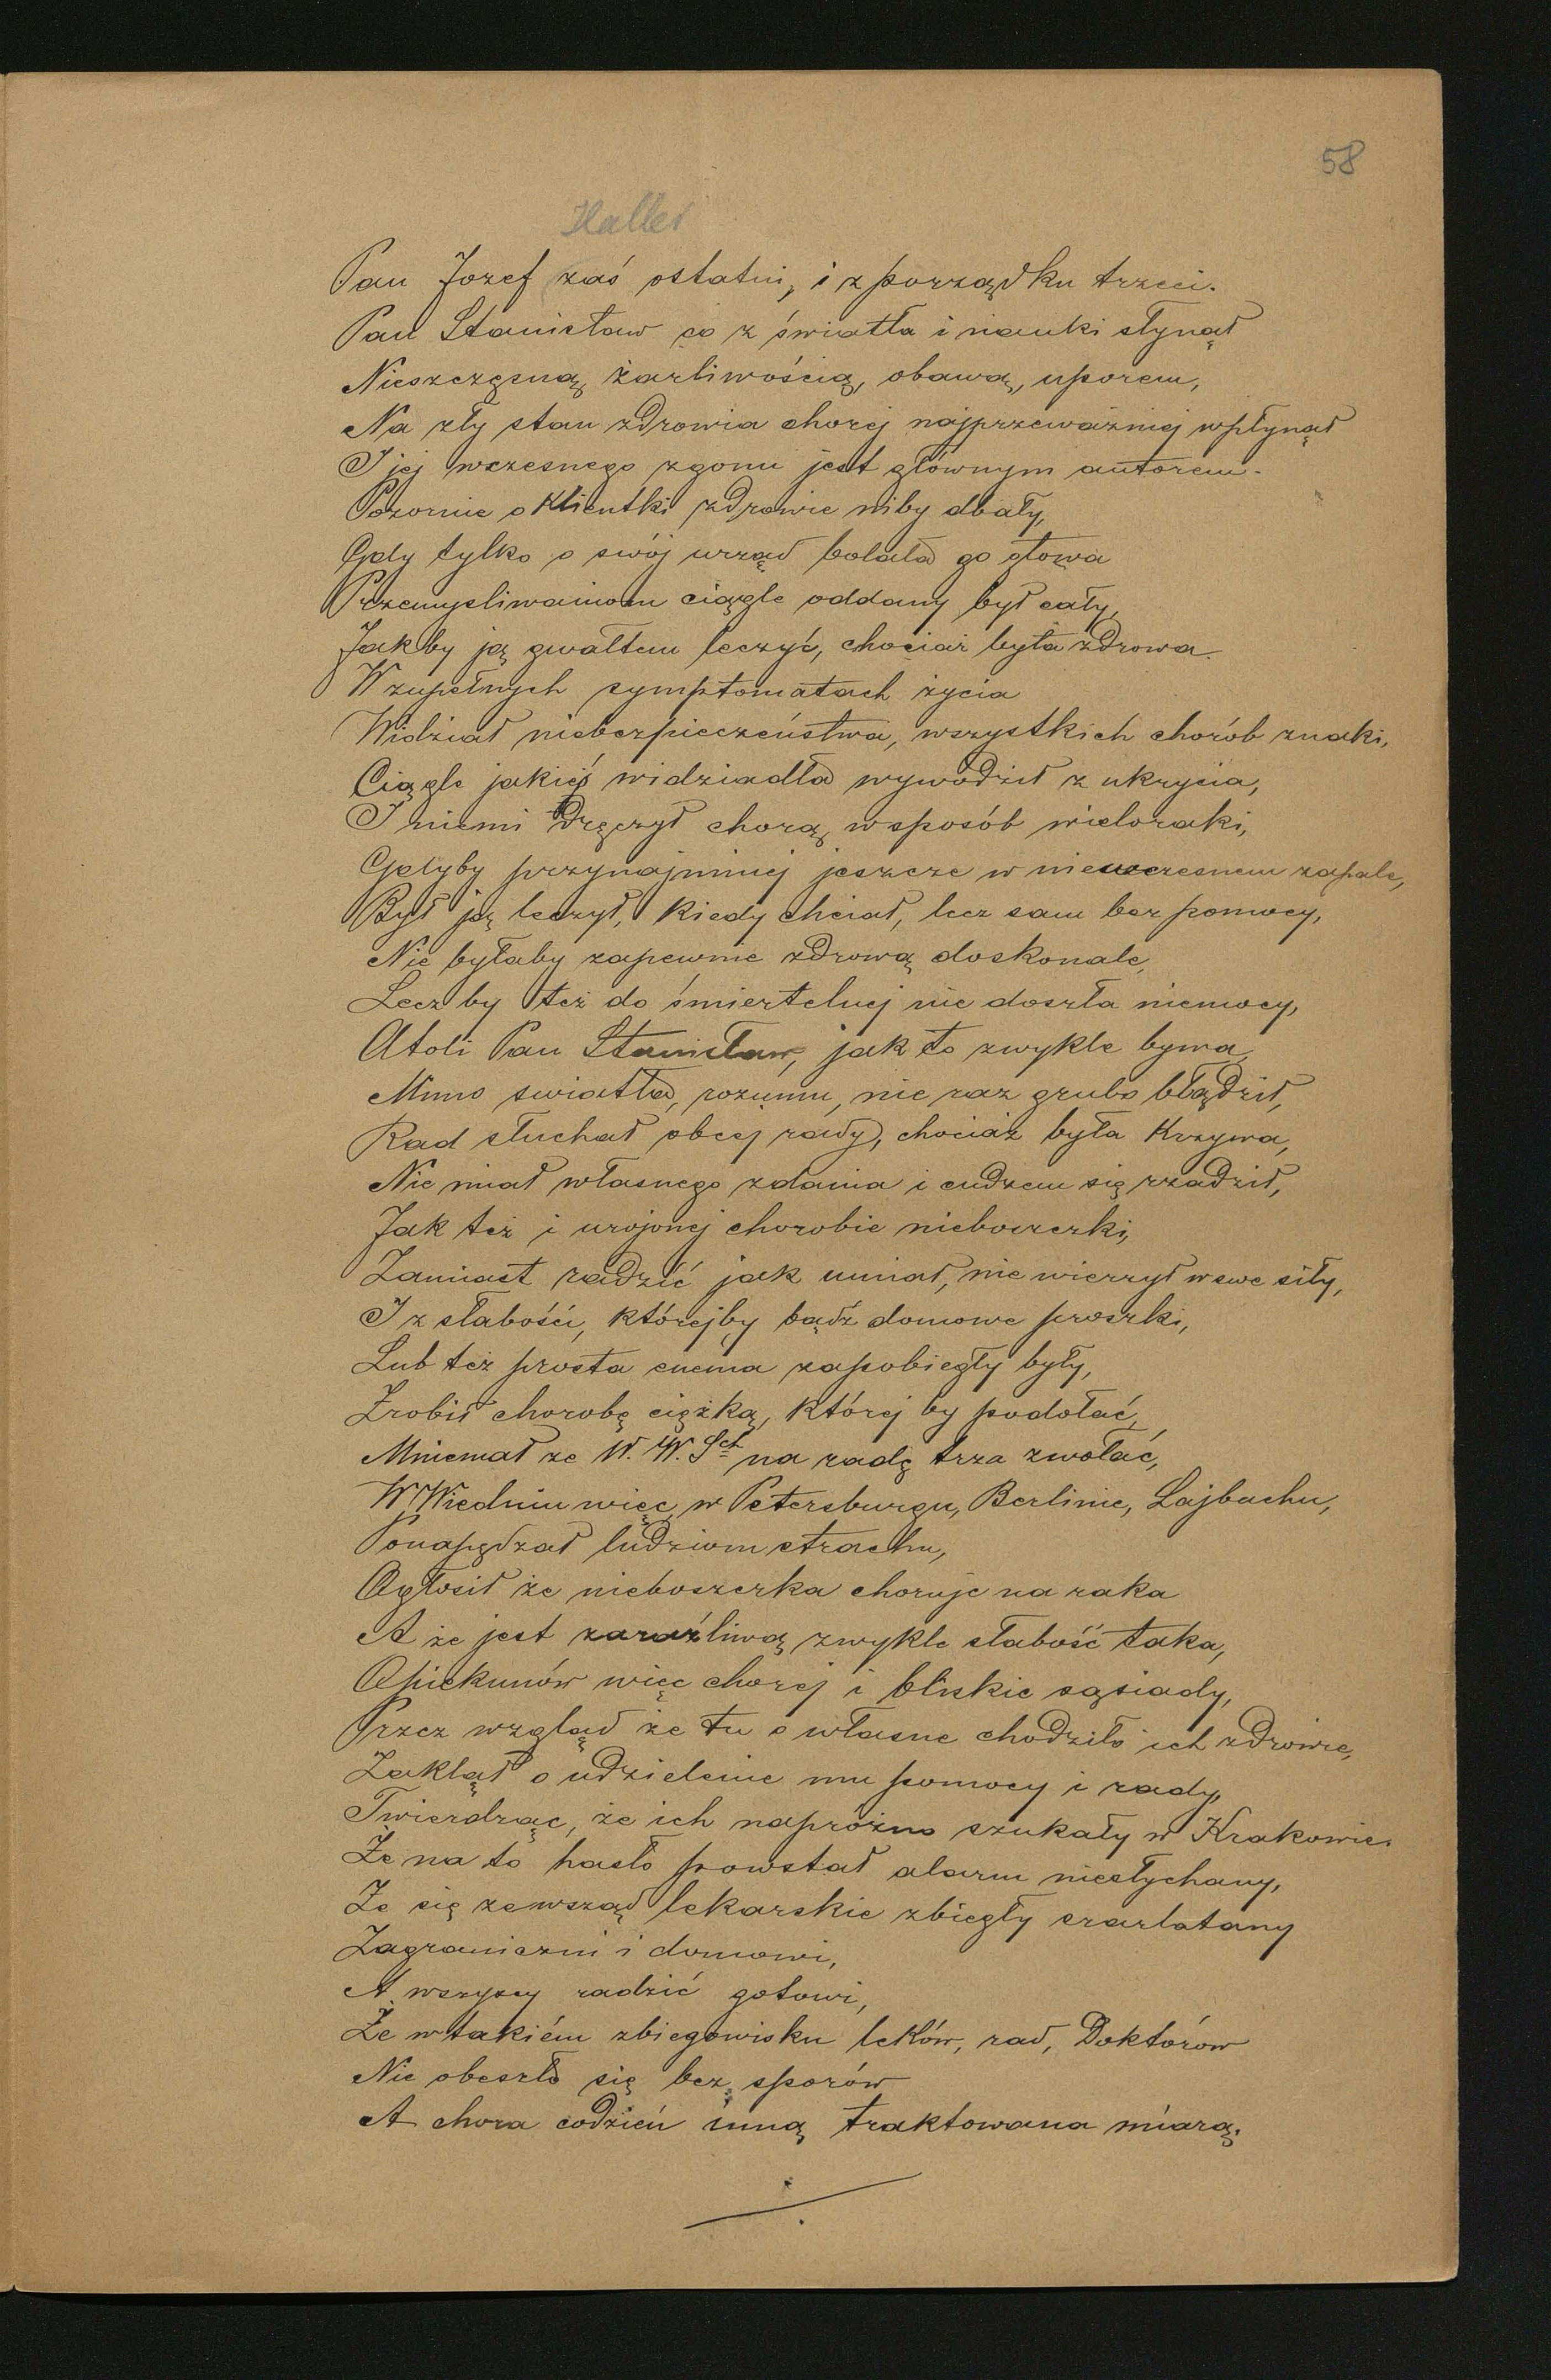 58
Haller
Pan Jozef zaś ostatni, i z porządku trzeci.
Pan Stanisław co z światła i nauki słynął
Nieszczęsną żarliwością, obawą, uporem,
Na zły stan zdrowia chorej najprzeważniej wpłynął
I jej wczesnego zgonu jest głównym autorem.
Pozornie o Klientki zdrowie niby dbały,
Gdy tylko o swój urząd bolała go głowa
Przemysliwaniom ciągle oddany był cały,
Jakby ją gwałtem leczyć, chociaż była zdrowa.
W zupełnych symptomatach życia
Widział niebezpieczeństwa, wszystkich chorób znaki,
Ciągle jakieś widziadła wywodził z ukrycia,
I niemi dręczył chorą w sposób wieloraki,
Gdyby przynajmniej jeszcze w niewczesnem zapale,
Był ją leczył, kiedy chciał, lecz sam bez pomocy,
Nie byłaby zapewnie zdrową doskonale,
Lecz by też do śmiertelnej nie doszła niemocy,
Atoli Pan Stanisław, jak to zwykle bywa,
Mimo swiatła, rozumu, nie raz grubo błądził,
Rad słuchał obcej rady, chociaż była Krzywa,
Nie miał własnego zdania i cudzem się rządził,
Jak też i urojonej chorobie nieboszczki,
Zamiast radzić jak umiał, nie wierzył w swe siły,
I z słabości, którejby bądź domowe proszki,
Lub też prosta enema zapobiegły były,
Zrobił chorobę ciężką, której by podołać,
Mniemał ze W. W. Sch na radę trza zwołać,
W Wiedniu więc, w Petersburgu, Berlinie, Lajbachu,
Ponapędzał ludziom strachu,
Ogłosił że nieboszczka choruje na raka
A że jest zaraźliwą zwykle słabość taka,
Opiekunów więc chorej i bliskie sąsiady,
Przez wzgląd że tu o własne chodziło ich zdrowie,
Zaklął o udzielenie mu pomocy i rady,
Twierdząc, że ich napróżno szukały w Krakowie.
Że na to hasło powstał alarm niesłychany,
Że się zewsząd lekarskie zbiegły szarlatany
Zagraniczni i domowi,
A wszyscy radzić gotowi,
Że w takiém zbiegowisku leków, rad, Doktórow
Nie obeszło się bez sporów
A chora codzień inną traktowana miarą.